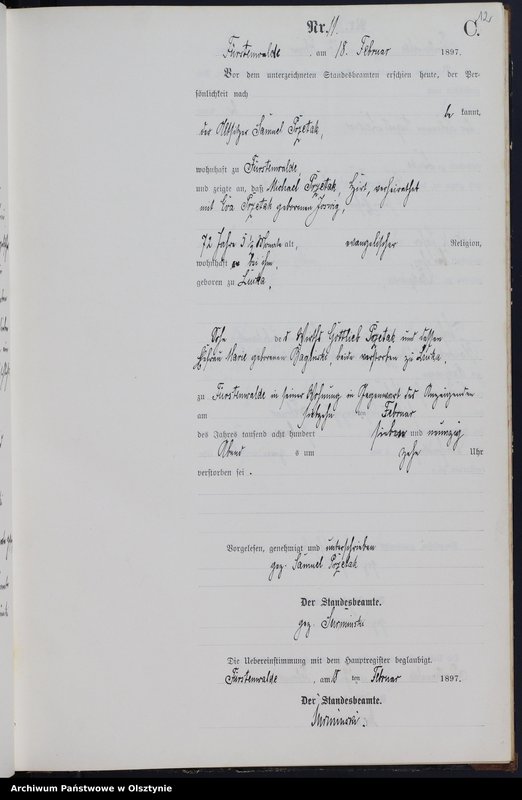 12
Nr. 11.
C.
Fürstenwalde, am 18. Februar 1897.
Vor dem unterzeichneten Standesbeamten erschien heute, der Per-
sönlichkeit nach
be kannt,
der Altsitzer Samuel
wohnhaft zu Fürstenwalde,
und zeigte an, daß Michael Hirt, verheirathet
mit Eva geborenen
72 Jahre 5 ½ Monate alt, evangelischer Religion,
wohnhaft bei ihm,
geboren zu Liska,
Sohn des Wirths Gottlieb und dessen
Ehefrau Marie geborenen beide verstorben zu Liska,
zu Fürstenwalde in seiner Wohnung in Gegenwart des Anzeigenden
am siebzehn ten Februar
des Jahres tausend acht hundert sieben und neunzig
Abend s um zehn Uhr
verstorben sei.
Vorgelesen, genehmigt und unterschrieben
gez. Samuel
Der Standesbeamte.
gez. Surminski
Die Uebereinstimmung mit dem Hauptregister beglaubigt.
Fürstenwalde, am 18 ten Februar 1897.
Der Standesbeamte.
Surminski.
Archiwum Państwowe w Olsztynie